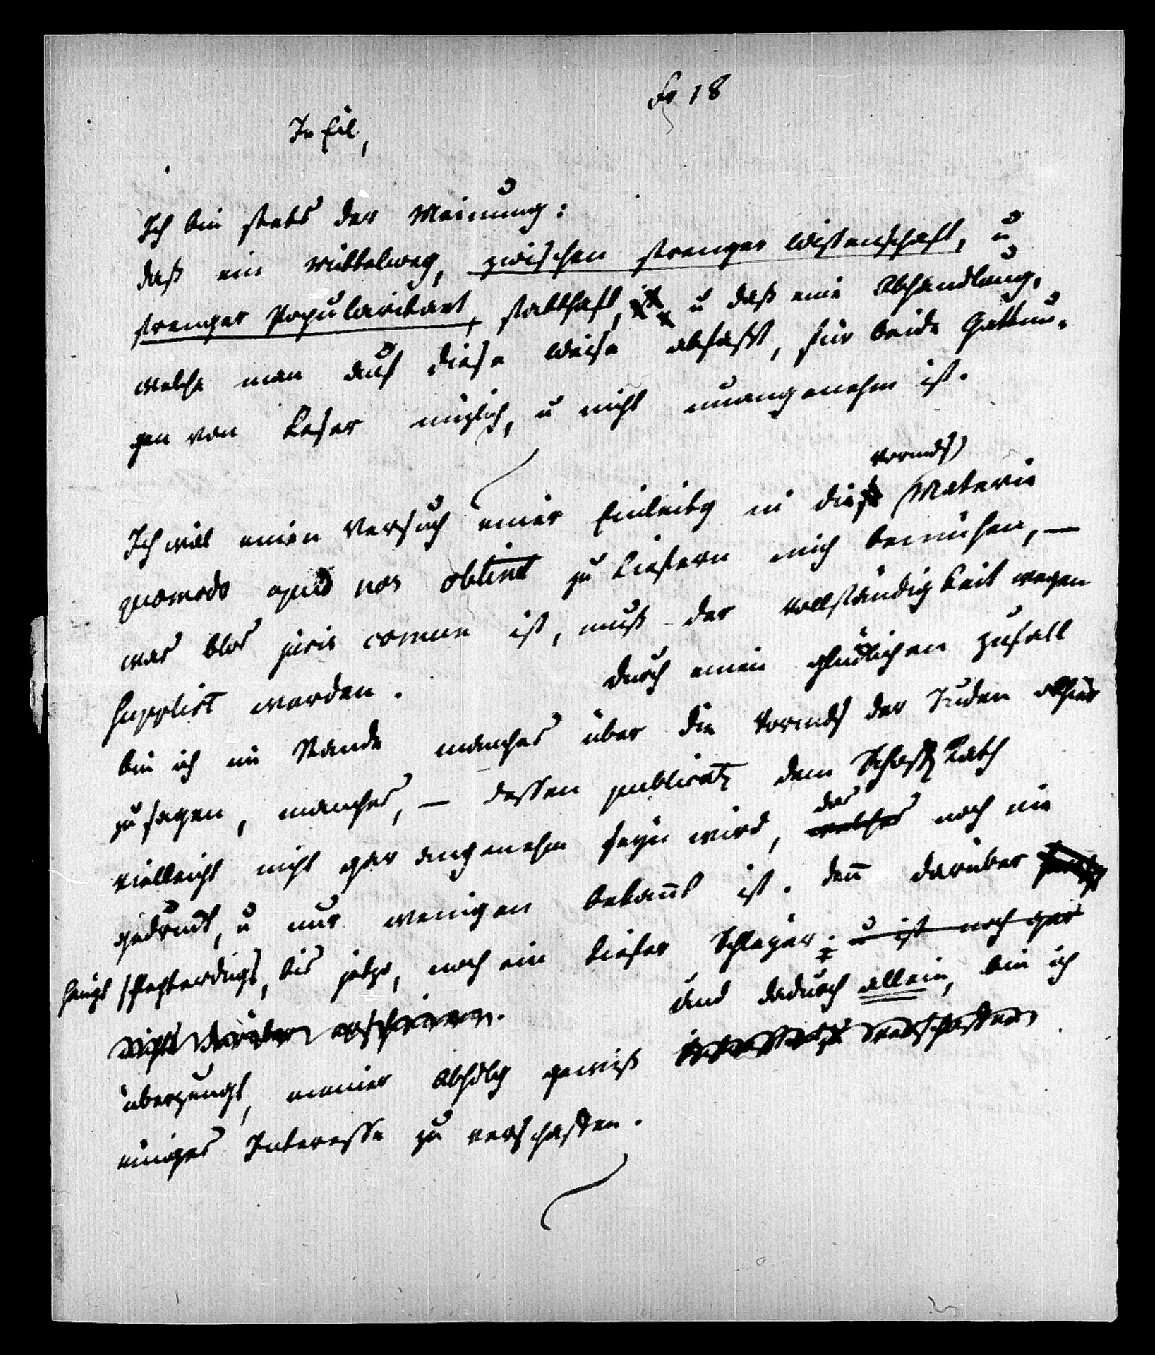 18
In Eil,
Ich bin stets der Meinung:
daß ein Mittelweg, zwischen strenger Wissenschaft, u
strenger Popularitaet, statthaft, u daß eine Abhandlung,
welche man auf diese Weise abfasst, für beide Gattun-
gen von Leser nüzlich, u nicht unangenehm ist.
vormds
Ich will einen Versuch einer Einleitg in diese Materie
quomodo apud nos obtinet zu liefern mich bemühen, –
was blos juris comun ist, muß der Vollständigkeit wegen
supplirt werden. Durch einen glücklichen Zufall
bin ich im Stande manches über die Vormds der Juden
zu sagen, manches, – dessen publicatz dem Rath
vielleicht nicht gar angenehm seyn wird, welches das noch nie
gedruckt, u nur wenigen bekannt ist. denn darüber
bis jetzo, noch ein tiefer u ist noch gar
nichts darüber erschienen. Und dadurch allein, bin ich
überzeugt, meiner Abhdlg gewiß verschaffen
einiges Interesse zu verschaffen.